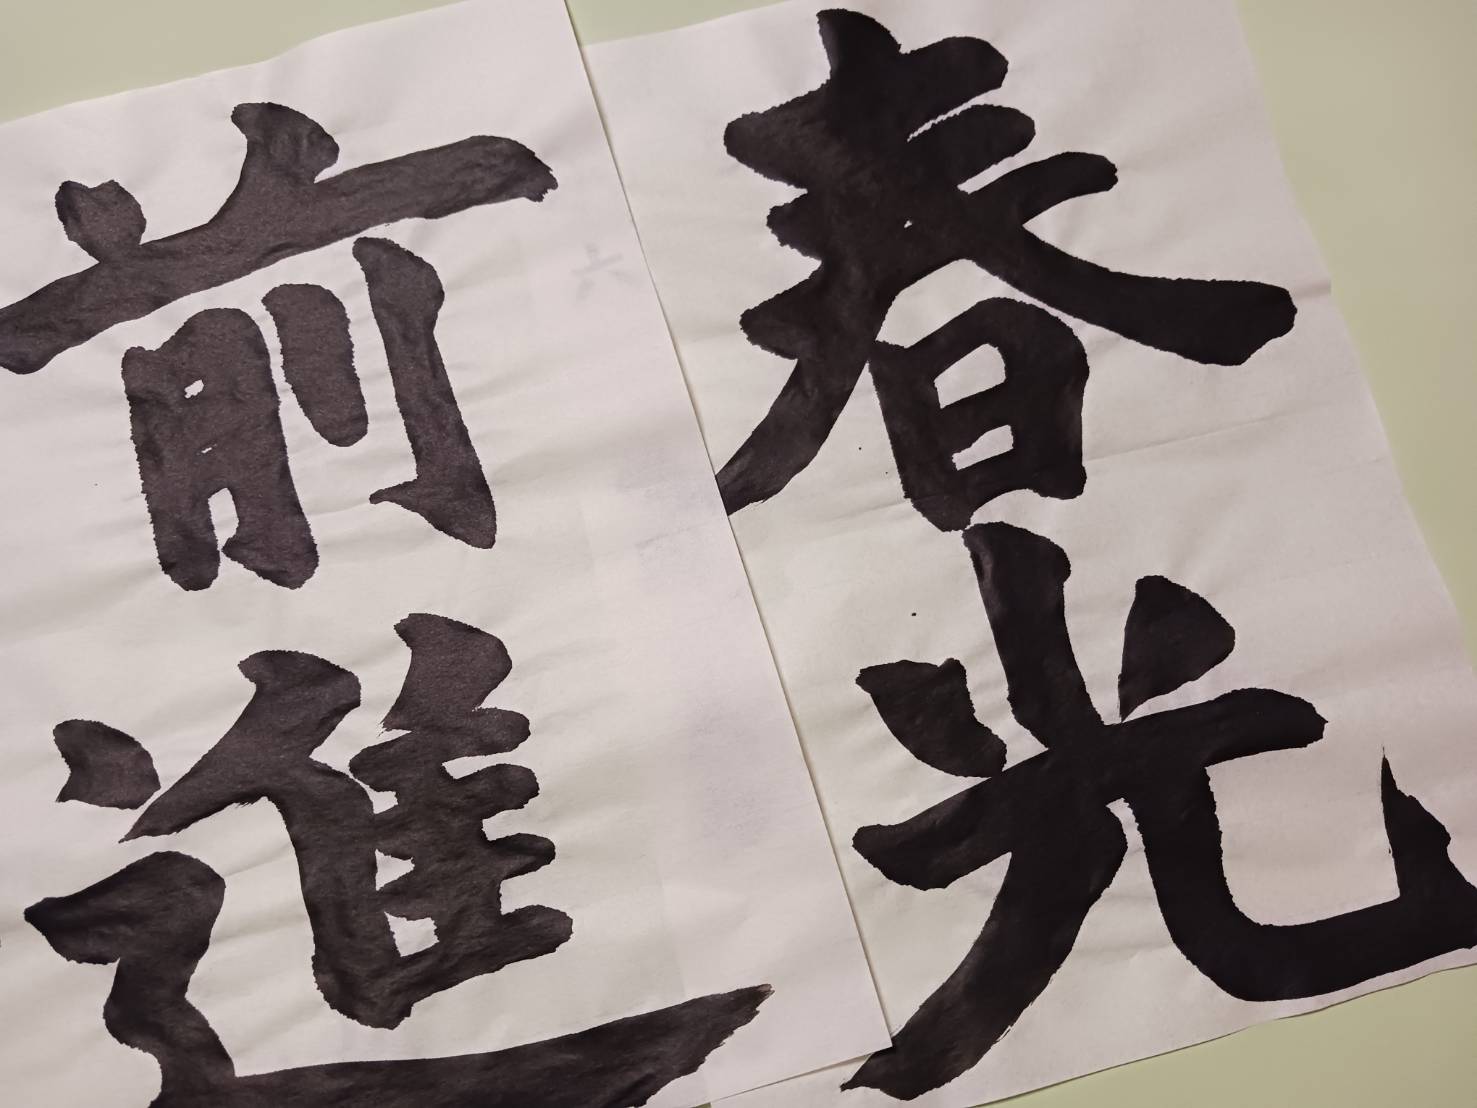 春光
前進